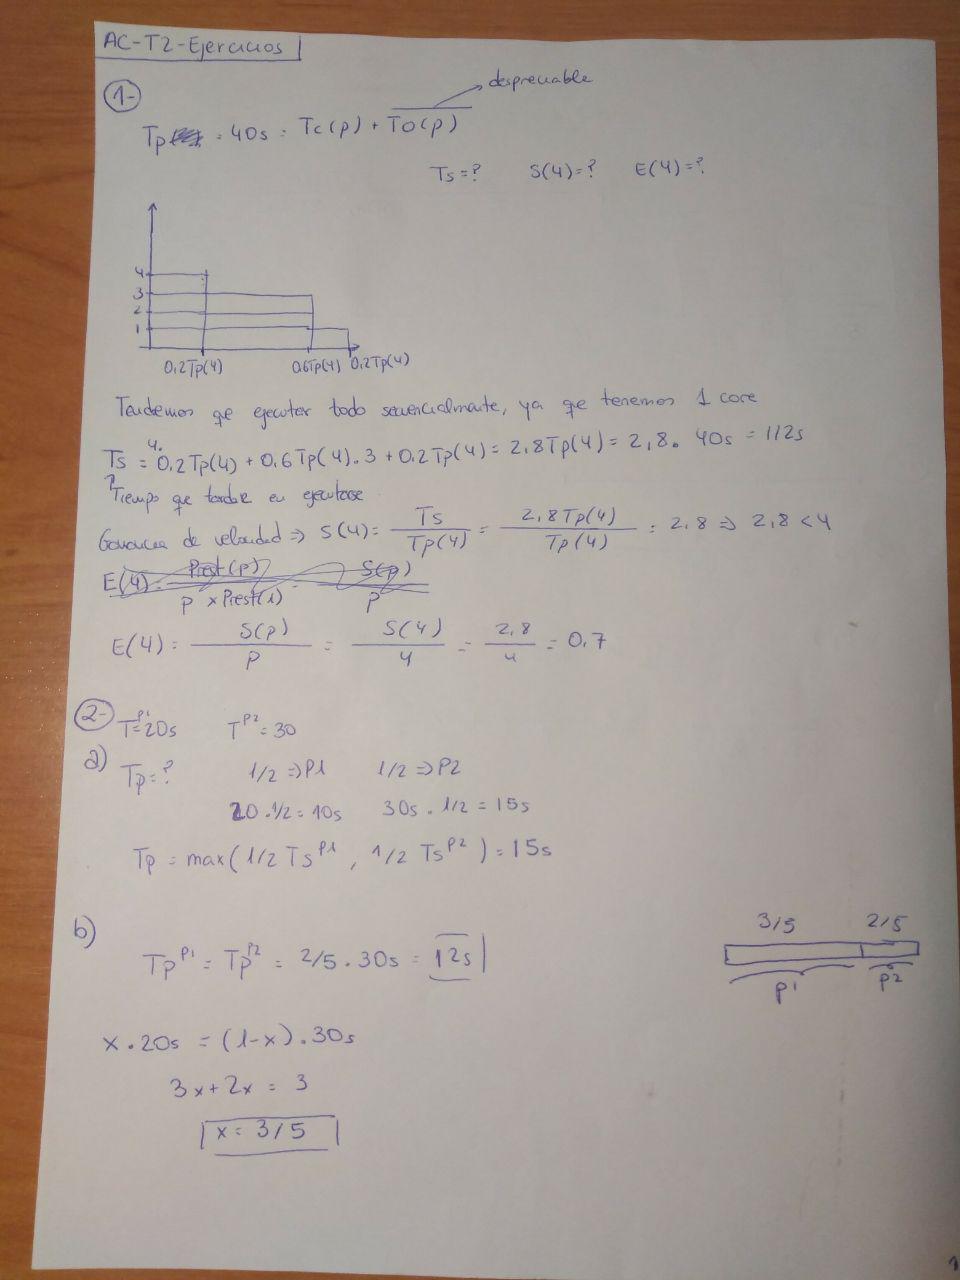 AC-T2-Ejercicios
1-
despreciable
Tp = 40s = Tc(p) + To(p)
Ts=? S(4)=? E(4)=?
4
3
2
1
0,2Tp(4) 0,6Tp(4) 0,2Tp(4)
Tendremos que ejecutar todo secuencialmente, ya que tenemos 1 core
Ts = 4·0,2Tp(4) + 0,6Tp(4)·3 + 0,2Tp(4) = 2,8Tp(4) = 2,8 · 40s = 112s
Tiempo que tarda en ejecutarse
Ganancia de velocidad => S(4) = Ts / Tp(4) = 2,8Tp(4) / Tp(4) = 2,8 => 2,8 < 4
E(4) = Prest(p) / p x Prest(1) = S(p) / p
E(4) = S(p) / p = S(4) / 4 = 2,8 / 4 = 0,7
2- T^P1=20s T^P2=30
a) Tp=? 1/2 => P1 1/2 => P2
20·1/2 = 10s 30s·1/2 = 15s
Tp = max(1/2 Ts^P1, 1/2 Ts^P2) = 15s
b)
3/5 2/5
Tp^P1 = Tp^P2 = 2/5·30s = 12s
P1 P2
x·20s = (1-x)·30s
3x+2x = 3
x = 3/5
1